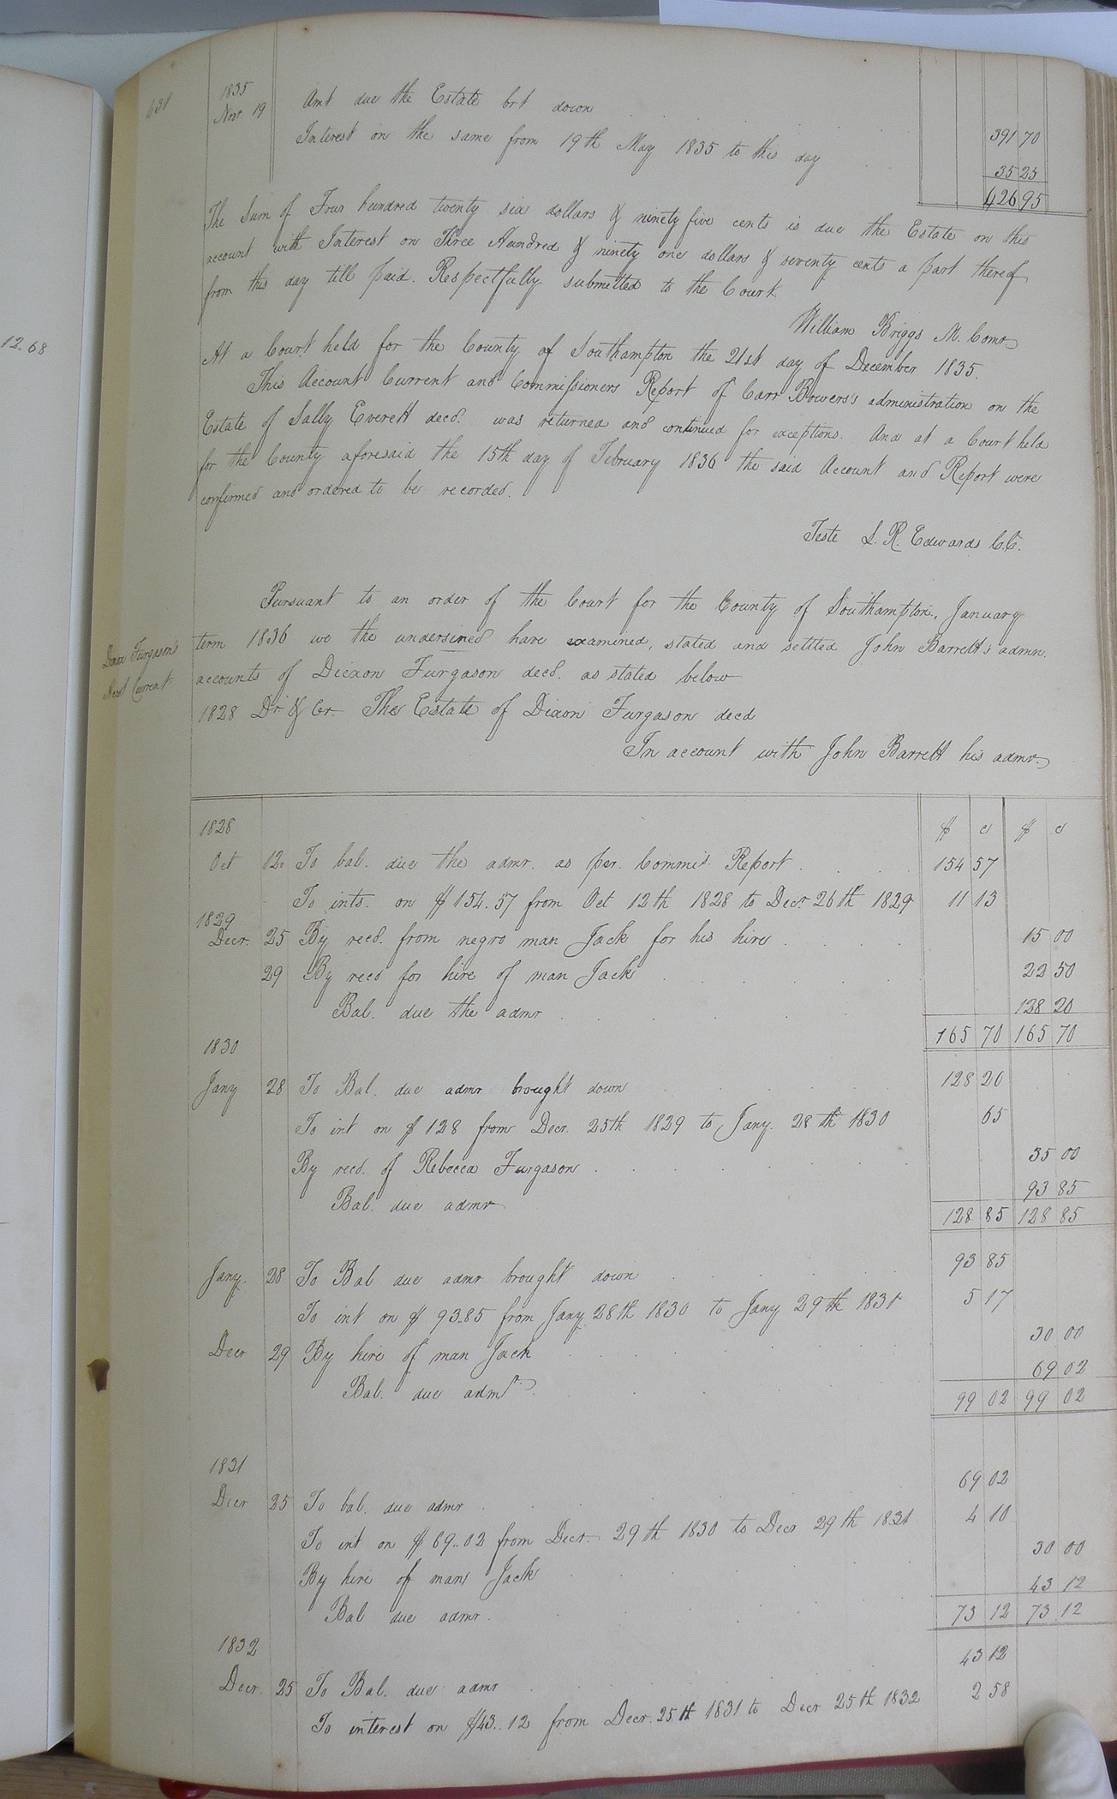 12.68
631
1835
Nov. 19 Amt due the Estate brt down 391 70
Interest on the same from 19th May 1835 to this day 35 25
426 95
The Sum of Four hundred twenty six dollars & ninety five cents is due the Estate on this
account with Interest on Three Hundred & ninety one dollars & seventy cents a part thereof
from this day till paid. Respectfully submitted to the Court
William Briggs M. Comr
At a Court held for the County of Southampton the 21st day of December 1835.
This Account Current and Commissioners Report of Carr Bowers's administration on the
Estate of Sally Everett decd. was returned and continued for exceptions. And at a Court held
for the County aforesaid the 15th day of February 1836 the said Account and Report were
confirmed and ordered to be recorded.
Teste L. R. Edwards C.C.
Pursuant to an order of the Court for the County of Southampton, January
term 1836 we the undersined have examined, stated and settled John Barrett's admn.
accounts of Dicxon Furgason decd. as stated below
Dixon Furgason's
Acct Current
1828 Dr & Cr. The Estate of Dixon Furgason decd
In account with John Barrett his admr.
1828 $ c $ c
Oct 12 To bal. due the admr. as per. Commis. Report. 154 57
To ints. on $154.57 from Oct 12th 1828 to Decr. 26th 1829 11 13
1829
Decr. 25 By recd. from negro man Jack for his hire 15 00
29 By recd for hire of man Jack 22 50
Bal. due the admr 128 20
165 70 165 70
1830
Jany 28 To Bal. due admr brought down 128 20
To int on $128 from Decr. 25th 1829 to Jany. 28th 1830 65
By recd. of Rebecca Furgason 35 00
Bal. due admr 93 85
128 85 128 85
Jany. 28 To Bal due admr brought down 93 85
To int on $93.85 from Jany. 28th 1830 to Jany 29th 1831 5 17
Decr 29 By hire of man Jack 30 00
Bal. due admr. 69 02
99 02 99 02
1831
Decr 25 To bal. due admr 69 02
To int on $69.02 from Decr. 29th 1830 to Decr 29th 1831 4 10
By hire of man Jack 30 00
Bal due admr. 43 12
73 12 73 12
1832
Decr. 25 To Bal. due admr 43 12
To interest on $43.12 from Decr. 25th 1831 to Decr 25th 1832 2 58